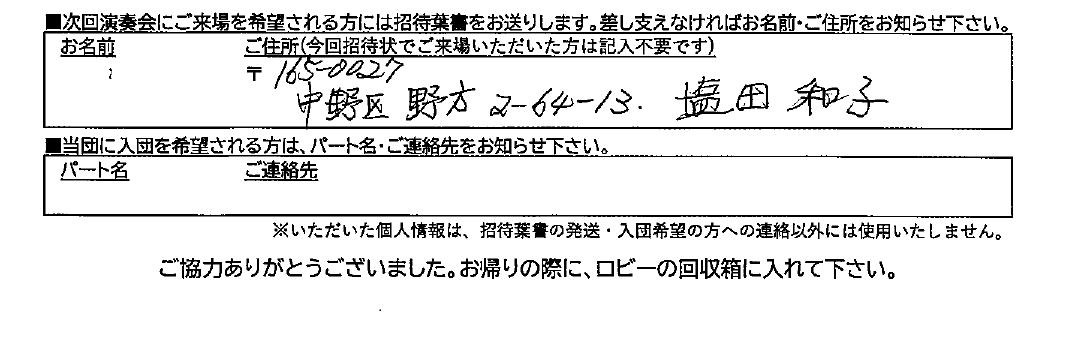 ■次回演奏会にご来場を希望される方には招待葉書をお送りします。差し支えなければお名前・ご住所をお知らせ下さい。
お名前 ご住所(今回招待状でご来場いただいた方は記入不要です)
〒165-0027
中野区 野方 2-64-13. 塩田 和子
■当団に入団を希望される方は、パート名・ご連絡先をお知らせ下さい。
パート名 ご連絡先
※いただいた個人情報は、招待葉書の発送・入団希望の方への連絡以外には使用いたしません。
ご協力ありがとうございました。お帰りの際に、ロビーの回収箱に入れて下さい。